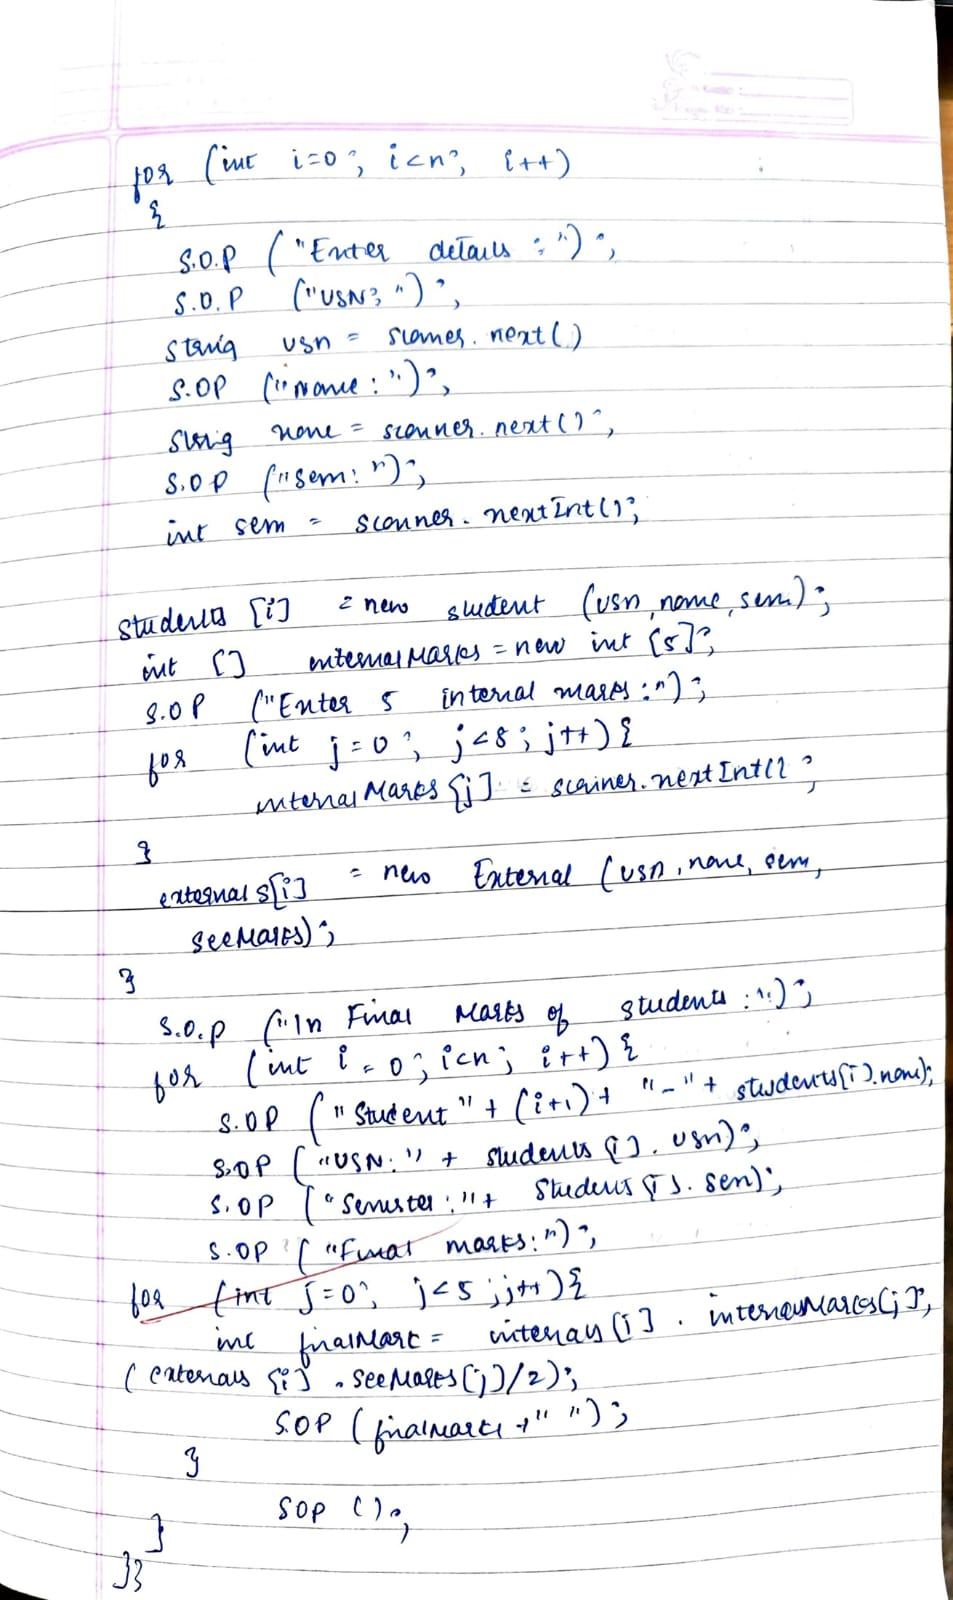 for (int i=0; i<n; i++)
{
S.O.P ("Enter details :");
S.O.P ("USN: ");
String usn = scanner.next()
S.OP ("Name: ");
String name = scanner.next();
S.O P ("sem: ");
int sem = scanner.nextInt();
students [i] = new student (usn, name, sem);
int [] internalMarks = new int [5];
S.O P ("Enter 5 internal marks :");
for (int j=0; j<8; j++){
internalMarks [j] = scanner.nextInt();
}
externals[i] = new External (usn, name, sem,
seeMarks);
}
S.O.P ("In Final Marks of students :");
for (int i=0; i<n; i++) {
S.OP ("Student" + (i+1) + "-" + students[i].name);
S.OP ("USN:" + students [i]. usn);
S.OP ("Semester:"+ Students [i]. sem);
S.OP ("Final marks:");
for (int j=0; j<5; j++){
int finalMark = internals [i]. internalMarks[j],
(externals [i]. seeMarks[j]/2);
S.OP (finalMarks +" ");
}
SOP ();
}
}}